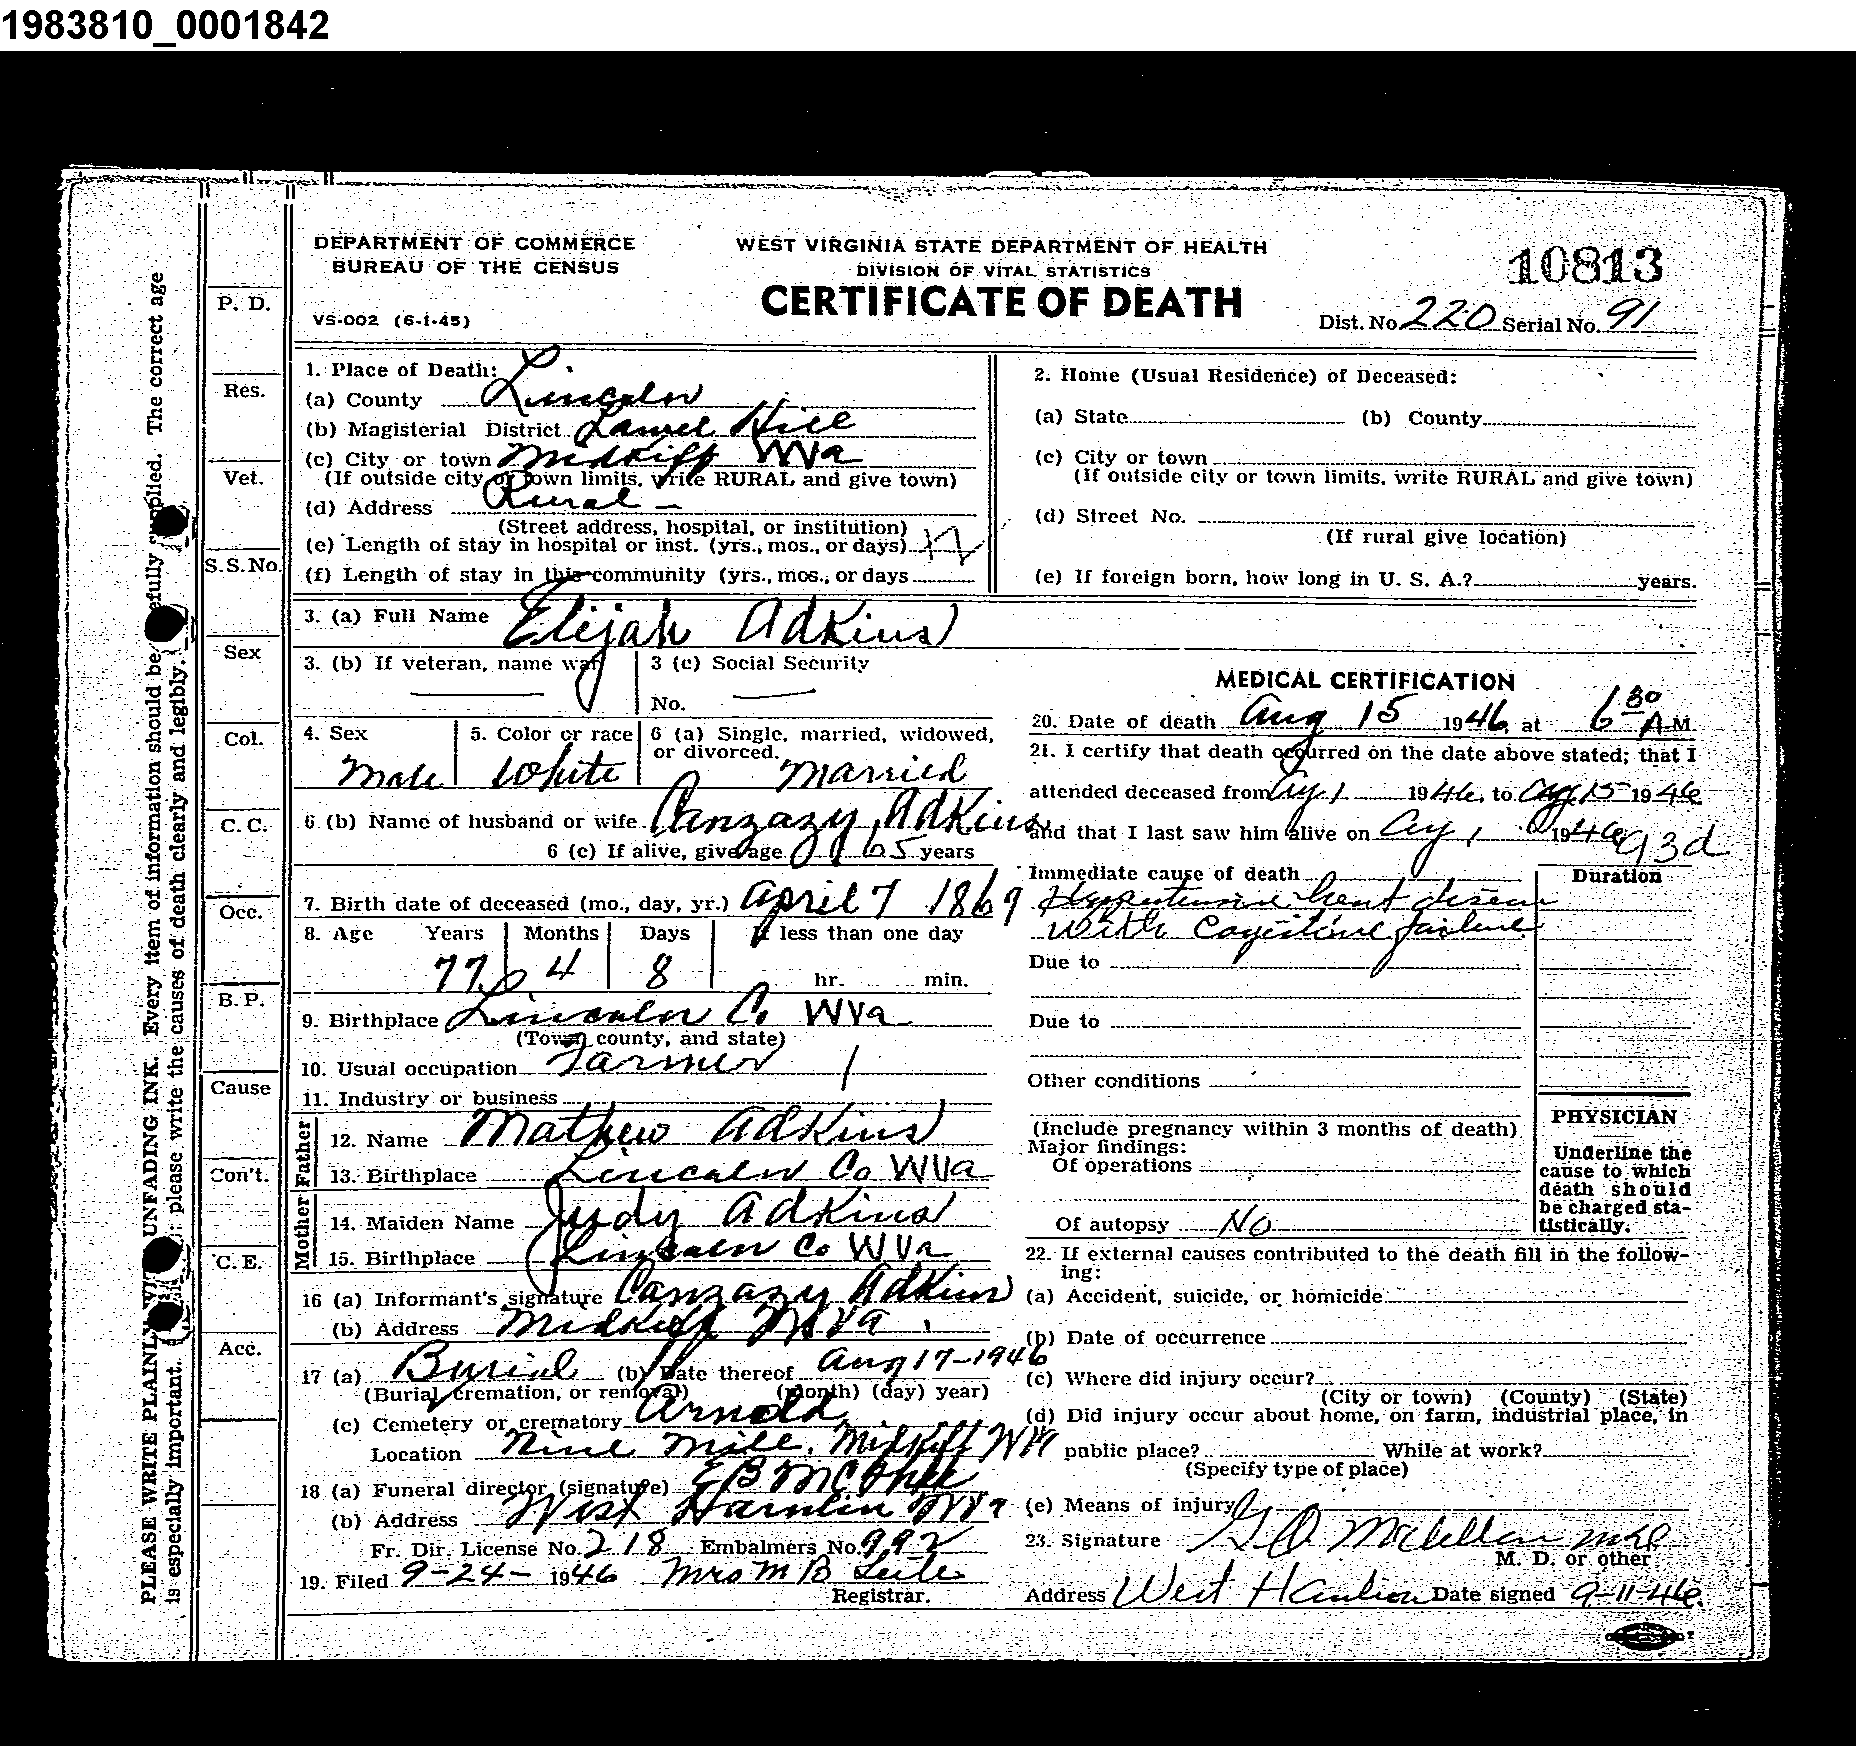 1983810_0001842
DEPARTMENT OF COMMERCE
BUREAU OF THE CENSUS
VS-002 (6-1-45)
WEST VIRGINIA STATE DEPARTMENT OF HEALTH
DIVISION OF VITAL STATISTICS
CERTIFICATE OF DEATH
10813
Dist. No. 220 Serial No. 91
PLEASE WRITE PLAINLY UNFADING INK. Every item of information should be supplied. The correct age
is especially important. please write the causes of death clearly and legibly.
P. D.
Res.
Vet.
S.S.No.
Sex
Col.
C. C.
Occ.
B. P.
Cause
Con't.
C. E.
Acc.
1. Place of Death:
(a) County Lincoln
(b) Magisterial District Laurel Hill
(c) City or town Midkiff WVa
(If outside city or town limits, write RURAL and give town)
(d) Address Rural -
(Street address, hospital, or institution)
(e) Length of stay in hospital or inst. (yrs., mos., or days)
(f) Length of stay in this community (yrs., mos., or days
2. Home (Usual Residence) of Deceased:
(a) State (b) County
(c) City or town
(If outside city or town limits, write RURAL and give town)
(d) Street No.
(If rural give location)
(e) If foreign born, how long in U. S. A.? years.
3. (a) Full Name Elijah Adkins
3. (b) If veteran, name war
3 (c) Social Security
No.
4. Sex Male
5. Color or race White
6 (a) Single, married, widowed,
or divorced. Married
6 (b) Name of husband or wife Canzazy Adkins
6 (c) If alive, give age 65 years
7. Birth date of deceased (mo., day, yr.) April 7 1869
8. Age Years Months Days If less than one day
77 4 8 hr. min.
9. Birthplace Lincoln Co WVa
(Town, county, and state)
10. Usual occupation Farmer
11. Industry or business
Father
12. Name Mathew Adkins
13. Birthplace Lincoln Co WVa
Mother
14. Maiden Name Judy Adkins
15. Birthplace Lincoln Co WVa
16 (a) Informant's signature Canzazy Adkins
(b) Address Midkiff WVa.
17 (a) Burial (b) Date thereof Aug 17-1946
(Burial, cremation, or removal) (month) (day) year)
(c) Cemetery or crematory Arnold
Location Nine Mile, Midkiff WVa
18 (a) Funeral director (signature) E B McGhee
(b) Address West Hamlin WVa
Fr. Dir. License No. 218 Embalmers No. 992
19. Filed 9-24- 1946 Mrs M B
Registrar.
MEDICAL CERTIFICATION
20. Date of death Aug 15 1946, at 6 30 A M
21. I certify that death occurred on the date above stated; that I
attended deceased from Aug 1 1946, to Aug 15 1946
and that I last saw him alive on Aug 1 1946
93d
Immediate cause of death
Duration
Hypertensive heart disease
with Congestive failure
Due to
Due to
Other conditions
(Include pregnancy within 3 months of death)
Major findings:
Of operations
Of autopsy No
PHYSICIAN
Underline the
cause to which
death should
be charged sta-
tistically.
22. If external causes contributed to the death fill in the follow-
ing:
(a) Accident, suicide, or homicide
(b) Date of occurrence
(c) Where did injury occur?
(City or town) (County) (State)
(d) Did injury occur about home, on farm, industrial place, in
public place? While at work?
(Specify type of place)
(e) Means of injury
23. Signature G O McClellan MD
M. D. or other
Address West Hamlin Date signed 9-11-46.